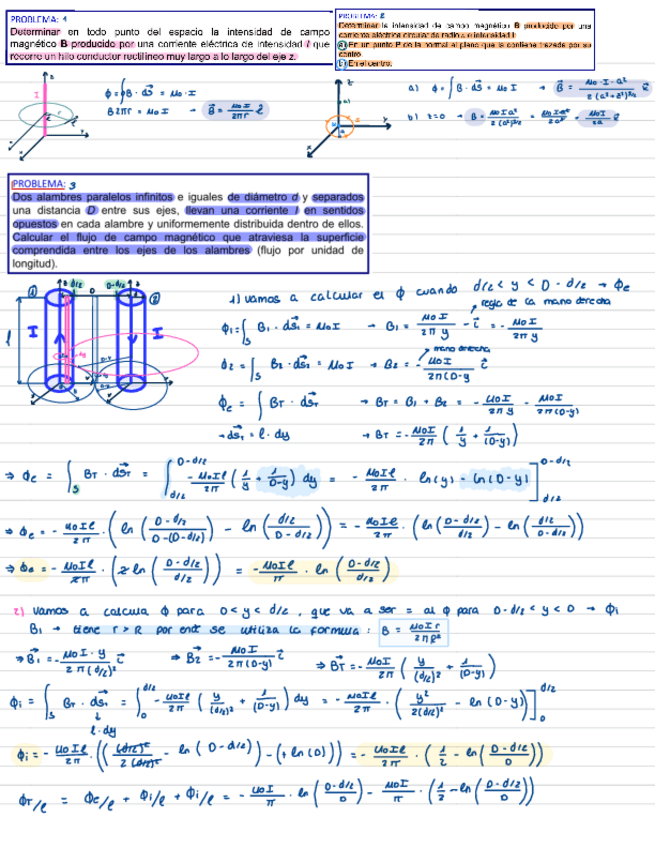 PROBLEMA: 1
Determinar en todo punto del espacio la intensidad de campo
magnético B producido por una corriente eléctrica de intensidad I que
recorre un hilo conductor rectilíneo muy largo a lo largo del eje z.
ϕ = ∮ B · ds = μ₀ · I
B2πr = μ₀I → B = μ₀I / 2πr
PROBLEMA: 2
Determinar la intensidad de campo magnético B producido por una
corriente eléctrica circular de radio a e intensidad I:
a) En un punto P de la normal al plano que la contiene trazada por su
centro.
b) En el centro.
a) ϕ = ∫ B · ds = μ₀I → B = μ₀ · I · a² / 2(a²+z²)^3/2
b) z=0 → B = μ₀Ia² / 2(a²)^3/2 = μ₀Ia² / 2a³ = μ₀I / 2a
PROBLEMA: 3
Dos alambres paralelos infinitos e iguales de diámetro d y separados
una distancia D entre sus ejes, llevan una corriente I en sentidos
opuestos en cada alambre y uniformemente distribuida dentro de ellos.
Calcular el flujo de campo magnético que atraviesa la superficie
comprendida entre los ejes de los alambres (flujo por unidad de
longitud).
① d/2 D D-d/2 ②
l I I
1) vamos a calcular el ϕ cuando d/2 < y < D - d/2 → ϕe
regla de la mano derecha
ϕ1 = ∫s B1 · ds1 = μ₀I → B1 = μ₀I / 2πy · -i = - μ₀I / 2πy
mano derecha
ϕ2 = ∫s B2 · ds2 = μ₀I → B2 = - μ₀I / 2π(D-y) i
ϕe = ∫ BT · dsT → BT = B1 + B2 = - μ₀I / 2πy - μ₀I / 2π(D-y)
→ dsT = l · dy → BT = - μ₀I / 2π (1/y + 1/(D-y))
⇒ ϕe = ∫s BT · dsT = ∫ d/2 D-d/2 - μ₀Il / 2π (1/y + 1/D-y) dy = - μ₀Il / 2π · ln(y) - ln(D-y) ] D-d/2 d/2
⇒ ϕe = - μ₀Il / 2π · (ln(D-d/2 / D-(D-d/2)) - ln(d/2 / D-d/2)) = - μ₀Il / 2π · (ln(D-d/2 / d/2) - ln(d/2 / D-d/2))
⇒ ϕe = - μ₀Il / 2π · (2 ln(D-d/2 / d/2)) = - μ₀Il / π · ln(D-d/2 / d/2)
2) vamos a calcula ϕ para 0<y<d/2, que va a ser = al ϕ para D-d/2<y<D → ϕi
B1 → tiene r>R por ende se utiliza la formula: B = μ₀Ir / 2πR²
⇒ B1 = - μ₀I · y / 2π(d/2)² i ⇒ B2 = - μ₀I / 2π(D-y) i ⇒ BT = - μ₀I / 2π (y / (d/2)² + 1 / (D-y))
ϕi = ∫s BT · dsT = ∫ 0 d/2 - μ₀Il / 2π (y / (d/2)² + 1 / (D-y)) dy = - μ₀Il / 2π · (y² / 2(d/2)² - ln(D-y)) ] d/2 0
l · dy
ϕi = - μ₀Il / 2π · (((d/2)² / 2(d/2)² - ln(D-d/2)) - (+ ln(D))) = - μ₀Il / 2π · (1/2 - ln(D-d/2 / D))
ϕT/l = ϕe/l + ϕi/l + ϕi/l = - μ₀I / π · ln(D-d/2 / D) - μ₀I / π · (1/2 - ln(D-d/2 / D))